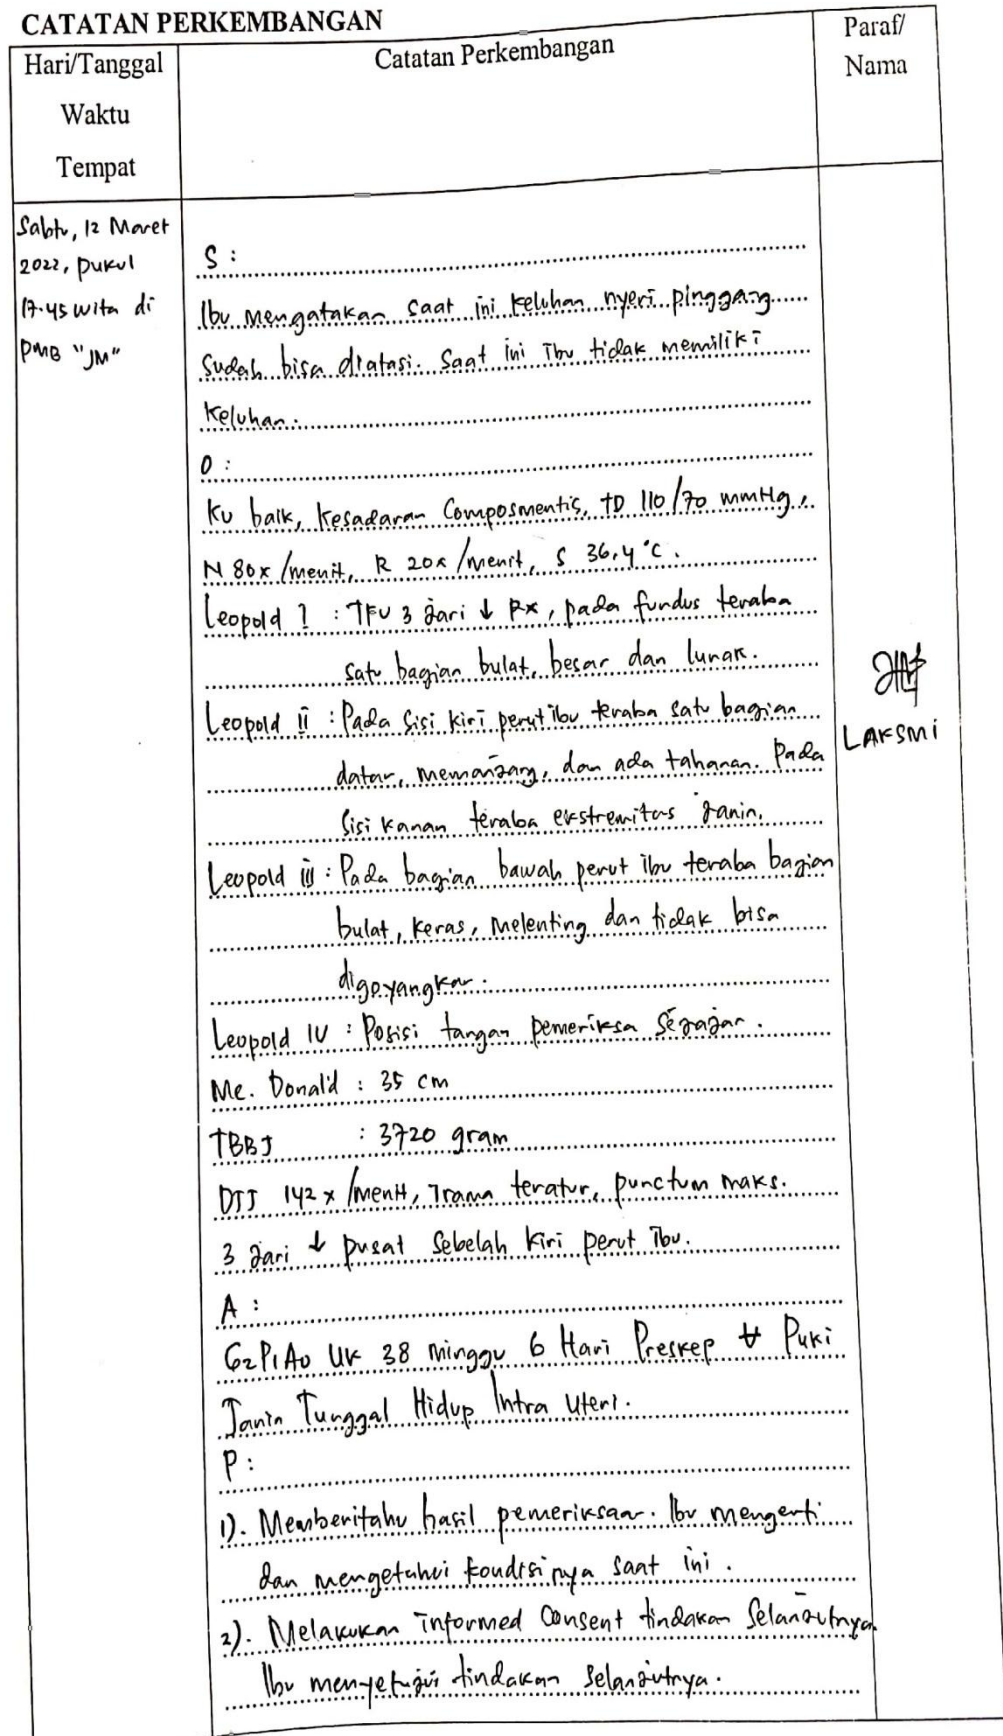 CATATAN PERKEMBANGAN
Hari/Tanggal
Waktu
Tempat
Catatan Perkembangan
Paraf/
Nama
Sabtu, 12 Maret
2022, pukul
17.45 wita di
PMB "JM"
S :
Ibu mengatakan saat ini keluhan nyeri pinggang
sudah bisa diatasi. Saat ini ibu tidak memiliki
keluhan.
O :
KU baik, Kesadaran Composmentis, TD 110/70 mmHg,
N 80x/menit, R 20x/menit, S 36,4 °C.
Leopold I : TFU 3 jari ↓ Px, pada fundus teraba
satu bagian bulat, besar dan lunak.
Leopold II : Pada sisi kiri perut ibu teraba satu bagian
datar, memanjang, dan ada tahanan. Pada
sisi kanan teraba ekstremitas janin.
Leopold III : Pada bagian bawah perut ibu teraba bagian
bulat, keras, melenting dan tidak bisa
digoyangkan.
Leopold IV : Posisi tangan pemeriksa sejajar.
Mc. Donald : 35 cm
TBBJ : 3720 gram
DJJ 142 x/menit, irama teratur, punctum maks.
3 jari ↓ pusat sebelah kiri perut ibu.
A :
G2P1A0 UK 38 minggu 6 Hari Preskep U Puki
Janin Tunggal Hidup Intra Uteri.
P :
1). Memberitahu hasil pemeriksaan. Ibu mengerti
dan mengetahui kondisinya saat ini.
2). Melakukan informed consent tindakan selanjutnya.
Ibu menyetujui tindakan selanjutnya.
LAKSMI